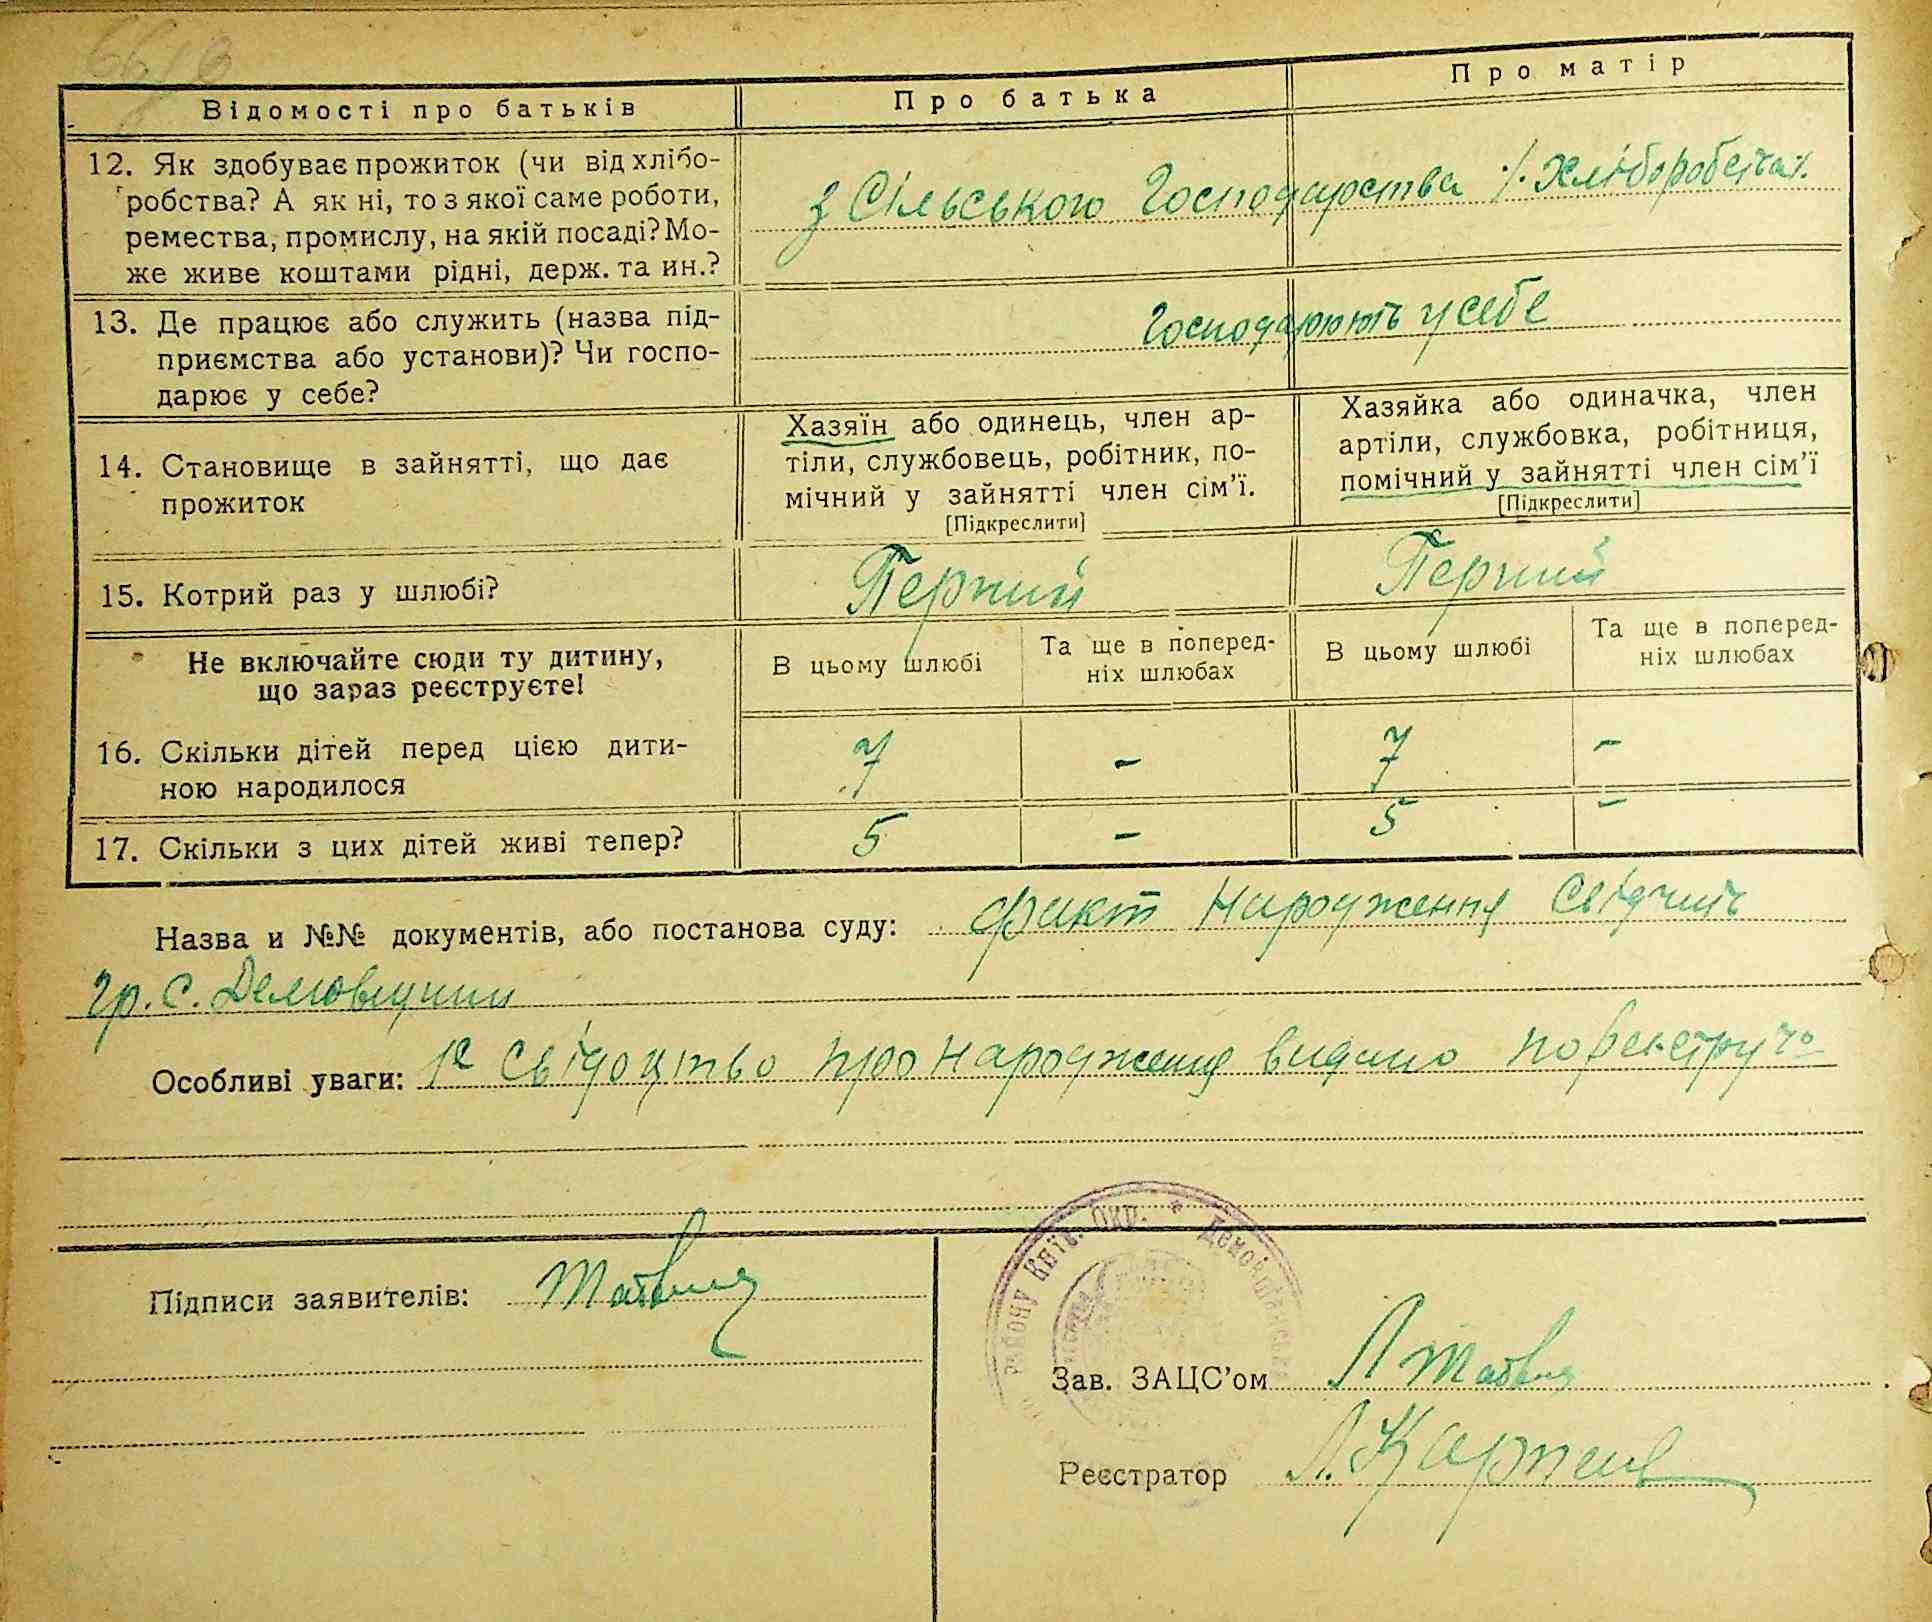 Відомості про батьків
Про батька
Про матір
12. Як здобуває прожиток (чи від хлібо-
робства? А як ні, то з якої саме роботи,
ремества, промислу, на якій посаді? Мо-
же живе коштами рідні, держ. та ин.?
з Сільського Господарства
13. Де працює або служить (назва під-
приємства або установи)? Чи госпо-
дарює у себе?
Господарюють у себе
14. Становище в зайнятті, що дає
прожиток
Хазяїн або одинець, член ар-
тіли, службовець, робітник, по-
мічний у зайнятті член сім’ї.
[Підкреслити]
Хазяйка або одиначка, член
артіли, службовка, робітниця,
помічний у зайнятті член сім’ї
[Підкреслити]
15. Котрий раз у шлюбі?
Перший
Перший
Не включайте сюди ту дитину,
що зараз реєструєте!
В цьому шлюбі
Та ще в поперед-
ніх шлюбах
В цьому шлюбі
Та ще в поперед-
ніх шлюбах
16. Скільки дітей перед цією дити-
ною народилося
7
-
7
-
17. Скільки з цих дітей живі тепер?
5
-
5
-
Назва и №№ документів, або постанова суду: факт Народження Свідчить
гр. с.
Особливі уваги: Свідоцтво про народження видано по реєстру
Підписи заявителів:
району Київ. Окр. *
Зав. ЗАЦС’ом
Реєстратор